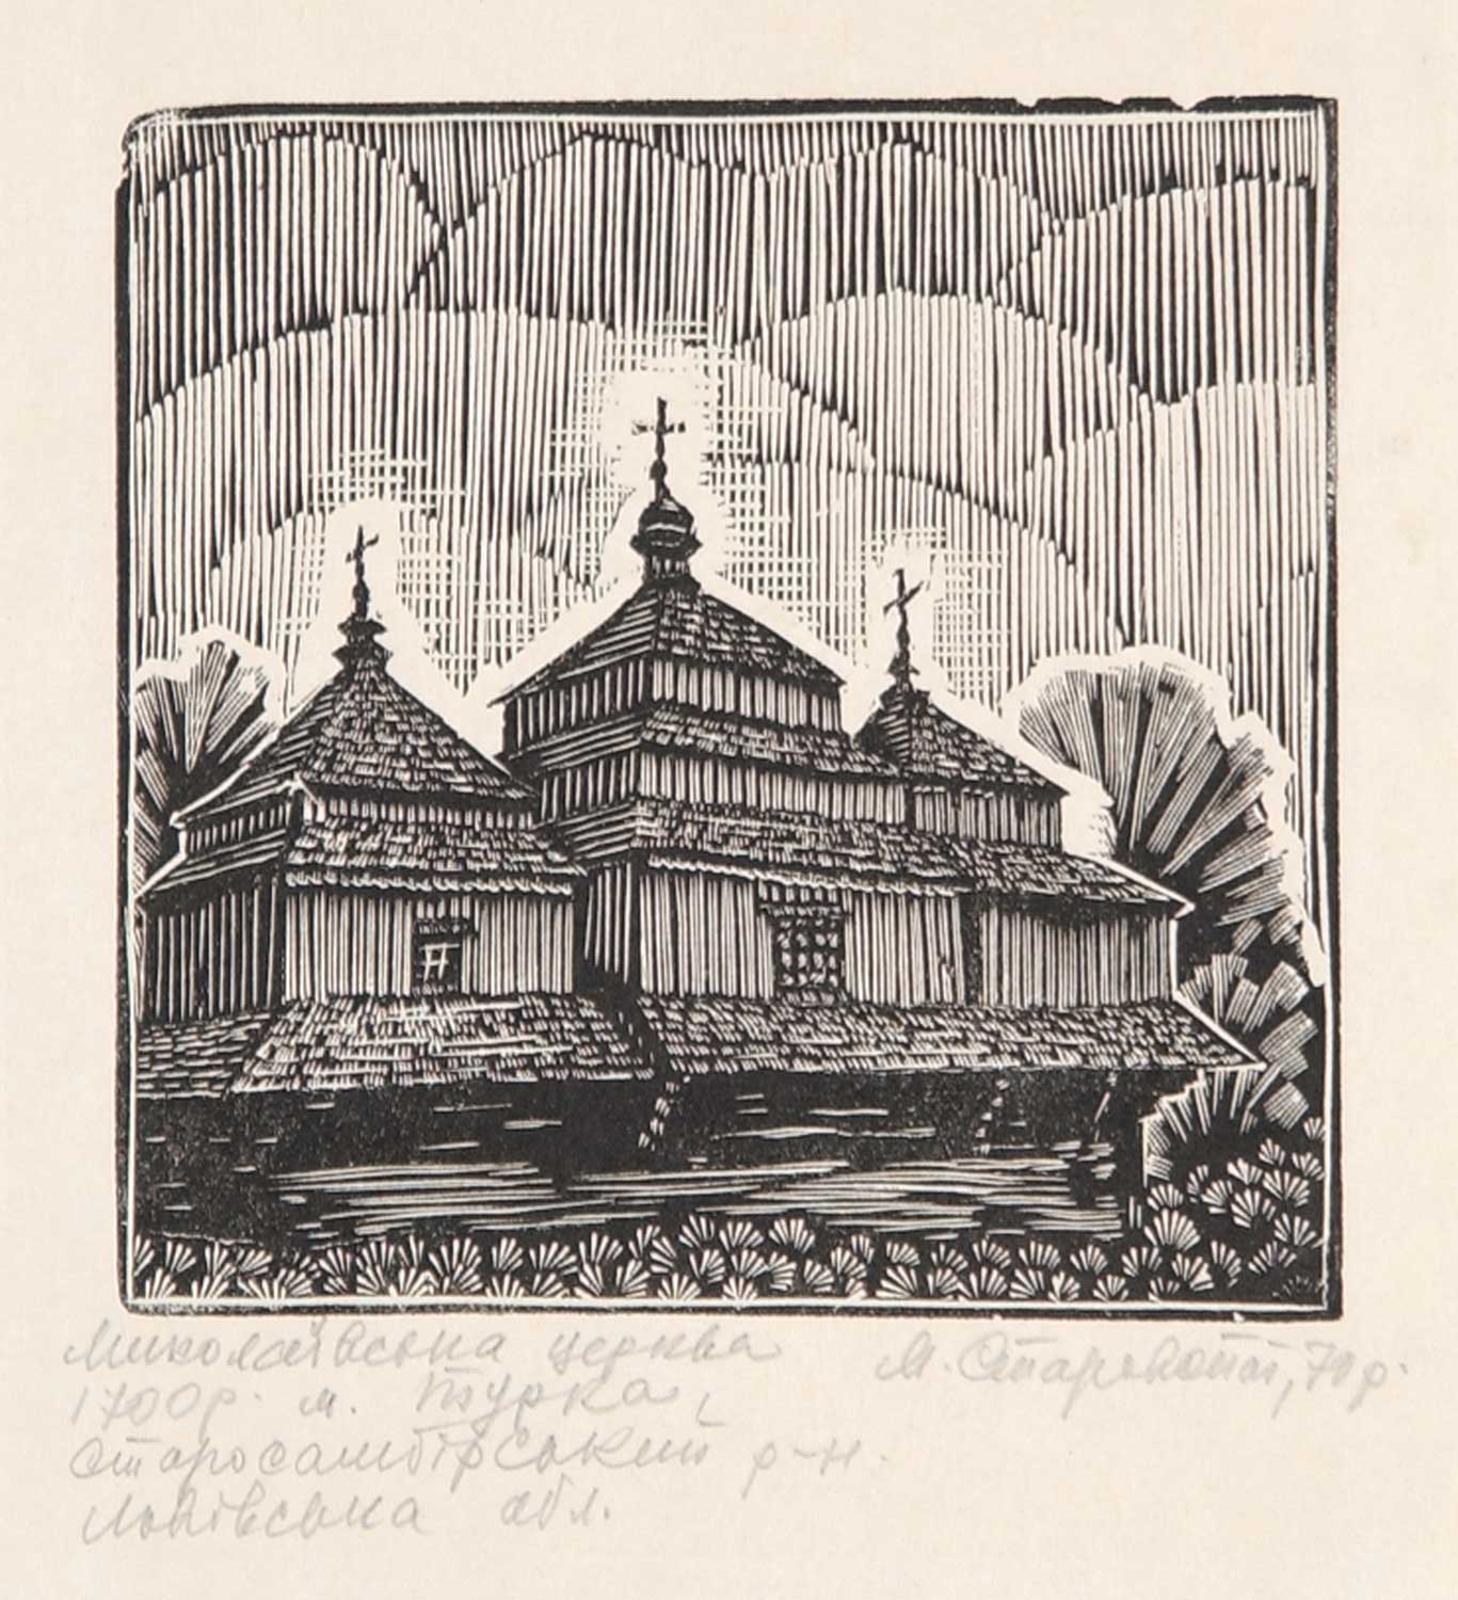 Миколаївська церква
1700р. м. Турка,
Старосамбірський р-н.
Львівська обл.
М. Старовойт, 70 р.